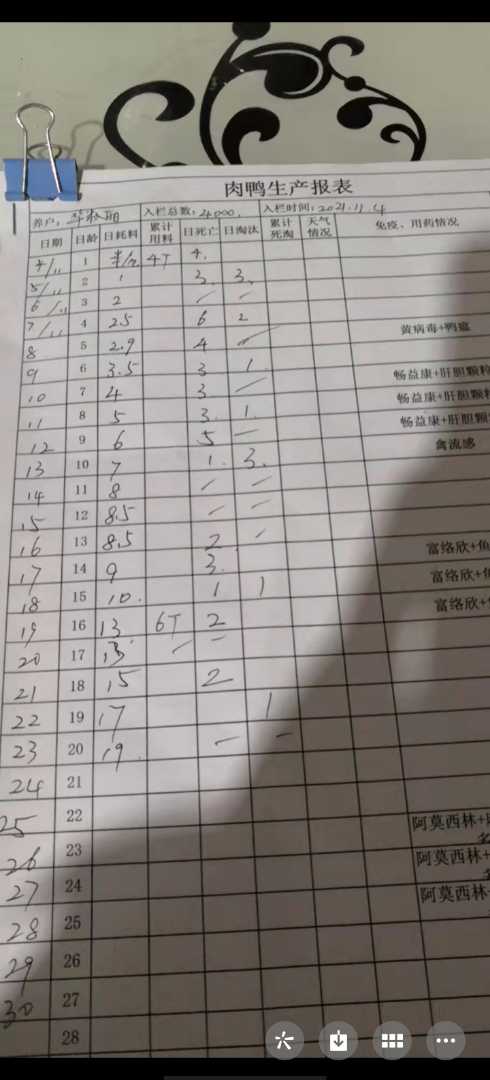 肉鸭生产报表
养户: 入栏总数: 4000. 入栏时间: 2021.11.4
日期 日龄 日耗料 累计用料 日死亡 日淘汰 累计死淘 天气情况 免疫、用药情况
4/11 1 4T 4.
5/11 2 1 3. 3.
6/11 3 2 — —
7/11 4 25 6 2
8 5 2.9 4 — 黄病毒+鸭瘟
9 6 3.5 3 1
10 7 4 3 — 畅益康+肝胆颗粒
11 8 5 3. 1. 畅益康+肝胆颗粒
12 9 6 5 — 畅益康+肝胆颗
13 10 7 1. 3. 禽流感
14 11 8 — —
15 12 8.5 — —
16 13 8.5 2 —
17 14 9 3. 富络欣+鱼
18 15 10. 1 1 富络欣+
19 16 13 6T 2 富络欣+
20 17 13 — —
21 18 15 2
22 19 17 1
23 20 19. — —
24 21
25 22
26 23 阿莫西林+
27 24 阿莫西林+
28 25 阿莫西林+
29 26
30 27
28